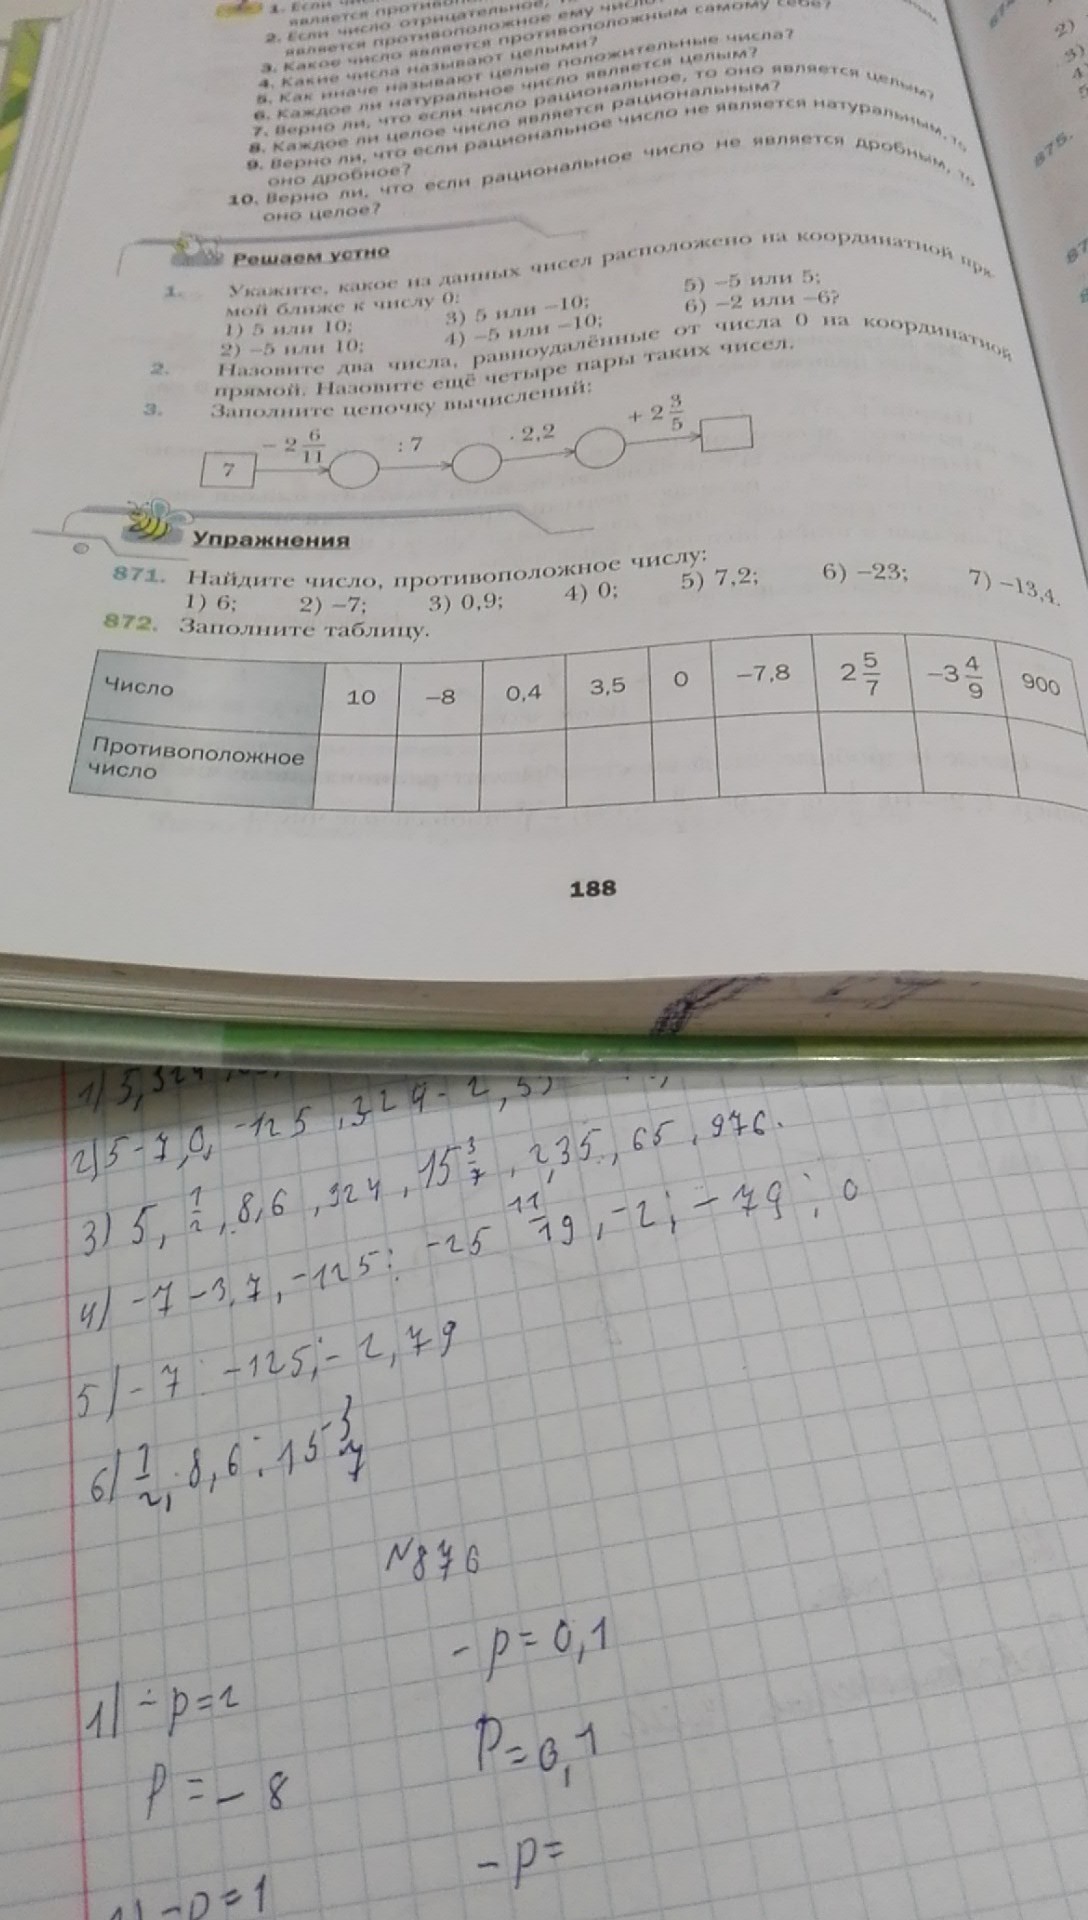 1. Если
является
2. Если число отрицательное,
является противоположное ему число
3. Какое число является противоположным самому себе?
4. Какие числа называют целыми?
5. Как иначе называют целые положительные числа?
6. Каждое ли натуральное число является целым?
7. Верно ли, что если число рациональное, то оно является целым?
8. Каждое ли целое число является рациональным?
9. Верно ли, что если рациональное число не является натуральным, то
оно дробное?
10. Верно ли, что если рациональное число не является дробным, то
оно целое?
Решаем устно
1. Укажите, какое из данных чисел расположено на координатной пря
мой ближе к числу 0:
1) 5 или 10; 3) 5 или −10; 5) −5 или 5;
2) −5 или 10; 4) −5 или −10; 6) −2 или −6?
2. Назовите два числа, равноудалённые от числа 0 на координатной
прямой. Назовите ещё четыре пары таких чисел.
3. Заполните цепочку вычислений:
7 − 2 6/11 : 7 · 2,2 + 2 3/5
Упражнения
871. Найдите число, противоположное числу:
1) 6; 2) −7; 3) 0,9; 4) 0; 5) 7,2; 6) −23; 7) −13,4.
872. Заполните таблицу.
Число 10 −8 0,4 3,5 0 −7,8 2 5/7 −3 4/9 900
Противоположное
число
188
2)
3)
4)
875.
87
1) 5, 324
2) 5 - 7, 0, -125, 324 - 2,
3) 5, 1/2, 8,6, 324, 15 3/7, 2,35, 65, 976.
4) -7 -3,7, -125; -25 11/19, -2; -79; 0
5) -7; -125; -2, 79
6) 1/2, 8,6; 15 3/7
№876
1) -p=2 -p=0,1
p=-8 P=0,1
-p=1 -p=